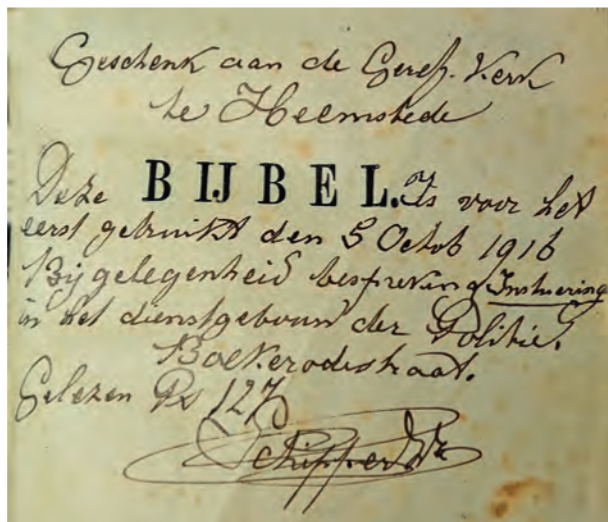 Geschenk aan de Geref. Kerk
te Heemstede
Deze BIJBEL. Is voor het
eerst gebruikt den 5 Octob 1916
Bij gelegenheid bespreking Instuering
in het dienstgebouw der Politie.
Boekerodestraat.
Gelezen Ps 127
Schipper